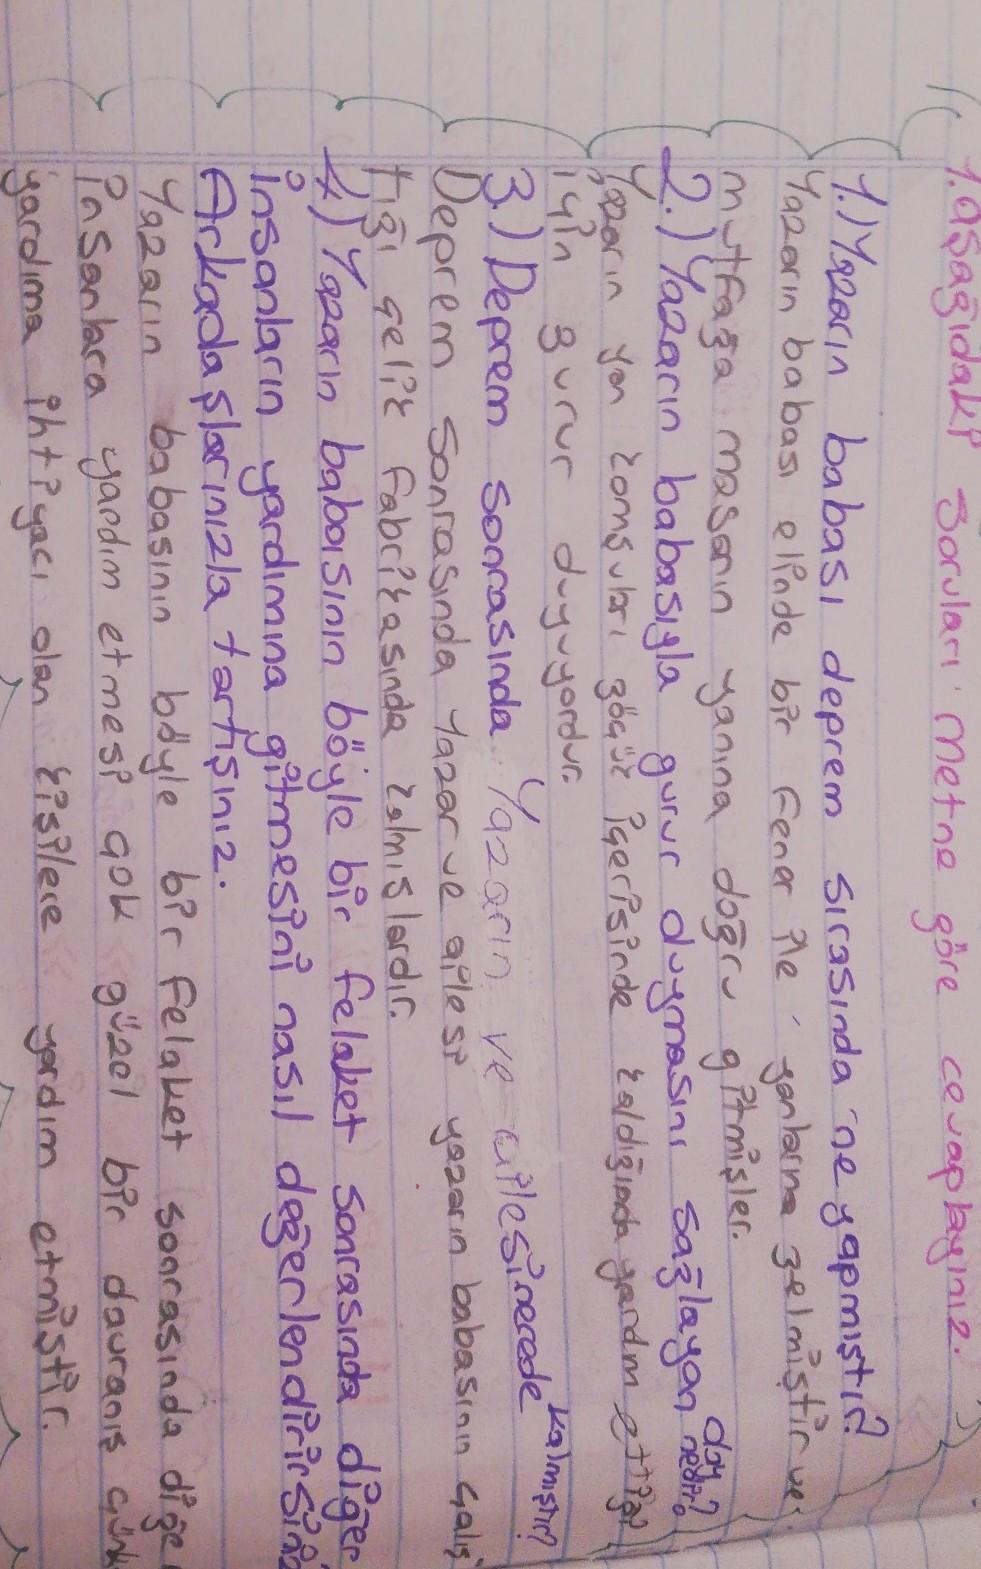 1. Aşağıdaki soruları metne göre cevaplayınız.
1.) Yazarın babası deprem sırasında ne yapmıştır?
Yazarın babası elinde bir fener ile yanlarına gelmiştir ve
mutfağa masanın yanına doğru gitmişler.
2.) Yazarın babasıyla gurur duymasını sağlayan nedir?
Yazarın yan komşuları göçük içerisinde kaldığında yardım ettiği
için gurur duyuyordur.
3.) Deprem sonrasında Yazarın ve ailesi nerede kalmıştır?
Deprem sonrasında Yazar ve ailesi yazarın babasının çalış
tığı çelik fabrikasında kalmışlardır.
4) Yazarın babaısının böyle bir felaket sonrasında diğer
insanların yardımına gitmesini nasıl değerlendirirsiniz
Arkadaşlarınızla tartışınız.
Yazarın babasının böyle bir felaket sonrasında diğe
insanlara yardım etmesi çok güzel bir davranış çünkü
yardıma ihtiyacı olan kişilere yardım etmiştir.